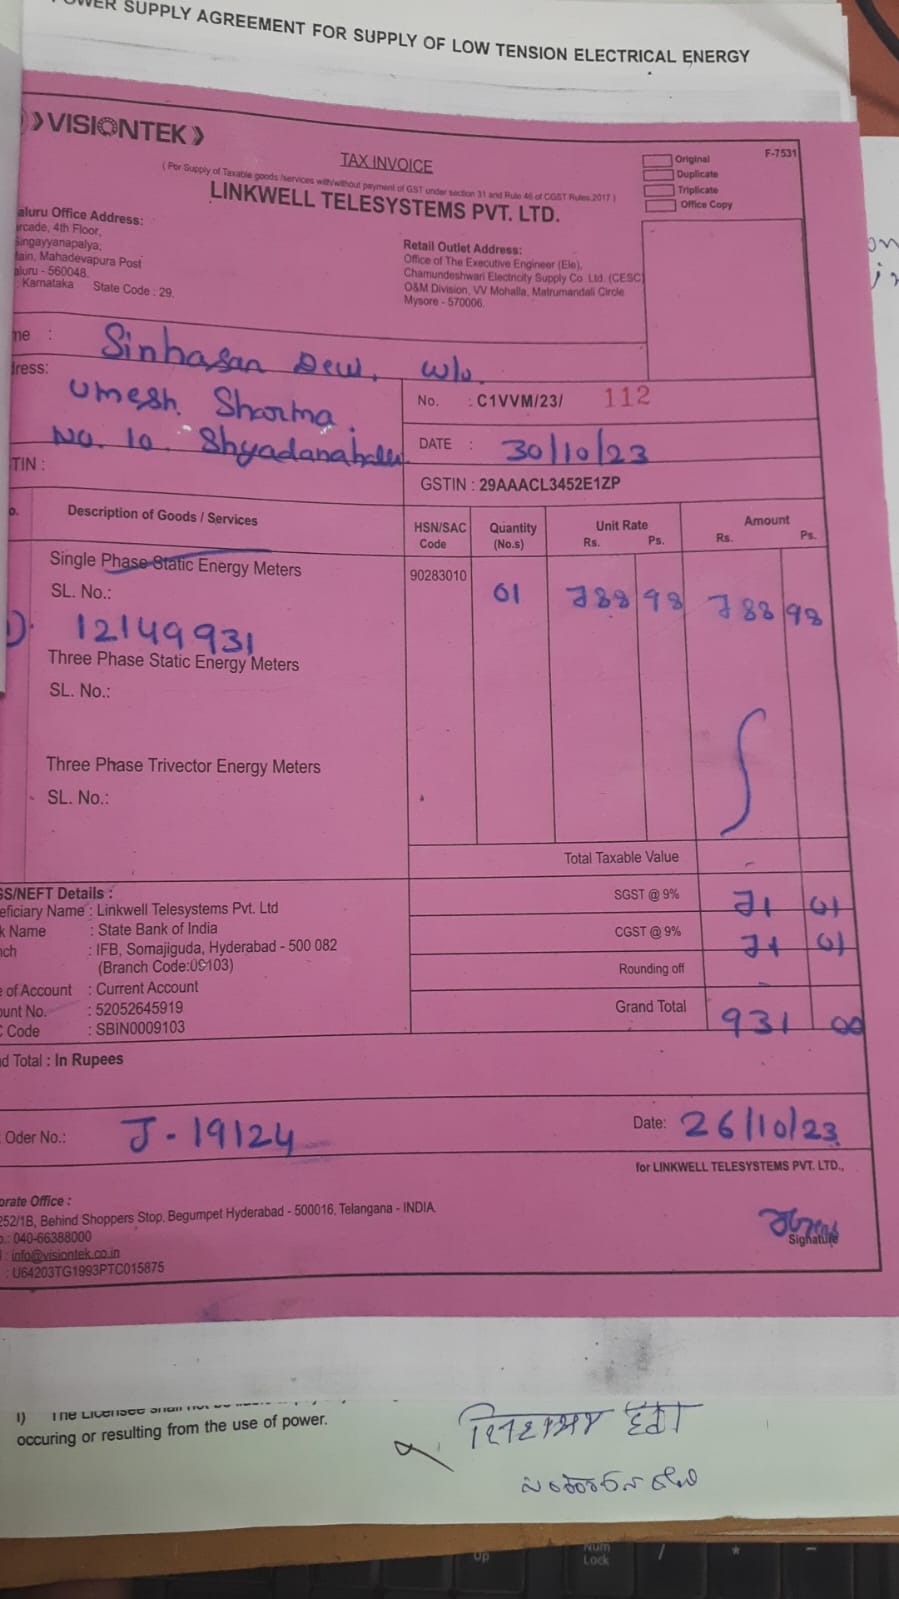 POWER SUPPLY AGREEMENT FOR SUPPLY OF LOW TENSION ELECTRICAL ENERGY
VISIONTEK
TAX INVOICE
( For Supply of Taxable goods /services with/without payment of GST under section 31 and Rule 46 of CGST Rules 2017 )
LINKWELL TELESYSTEMS PVT. LTD.
Original
Duplicate
Triplicate
Office Copy
F-7531
aluru Office Address:
rcade, 4th Floor,
Singayyanapalya,
Main, Mahadevapura Post
aluru - 560048.
Karnataka State Code : 29.
Retail Outlet Address:
Office of The Executive Engineer (Ele),
Chamundeshwari Electricity Supply Co. Ltd. (CESC)
O&M Division, VV Mohalla, Matrumandali Circle
Mysore - 570006.
me : Sinhasan Devi, W/o.
dress: Umesh Sharma.
No. 10. Shyadanahalli
TIN :
No. : C1VVM/23/ 112
DATE : 30/10/23
GSTIN : 29AAACL3452E1ZP
o. Description of Goods / Services HSN/SAC Code Quantity (No.s) Unit Rate Rs. Ps. Amount Rs. Ps.
Single Phase Static Energy Meters 90283010 01 788 98 788 98
SL. No.:
1). 12149931
Three Phase Static Energy Meters
SL. No.:
Three Phase Trivector Energy Meters
SL. No.:
Total Taxable Value -
SGST @ 9% 71 01
CGST @ 9% 71 01
Rounding off -
Grand Total 931 00
GS/NEFT Details :
eficiary Name : Linkwell Telesystems Pvt. Ltd
k Name : State Bank of India
nch : IFB, Somajiguda, Hyderabad - 500 082
(Branch Code:09103)
e of Account : Current Account
ount No. : 52052645919
C Code : SBIN0009103
d Total : In Rupees
Oder No.: J - 19124 Date: 26/10/23
for LINKWELL TELESYSTEMS PVT. LTD.,
Signature
orate Office :
252/1B, Behind Shoppers Stop, Begumpet Hyderabad - 500016, Telangana - INDIA.
o.: 040-66388000
l : info@visiontek.co.in
: U64203TG1993PTC015875
i) The Licensee shall not be
occuring or resulting from the use of power.
Up
Num
Lock
/
*
-